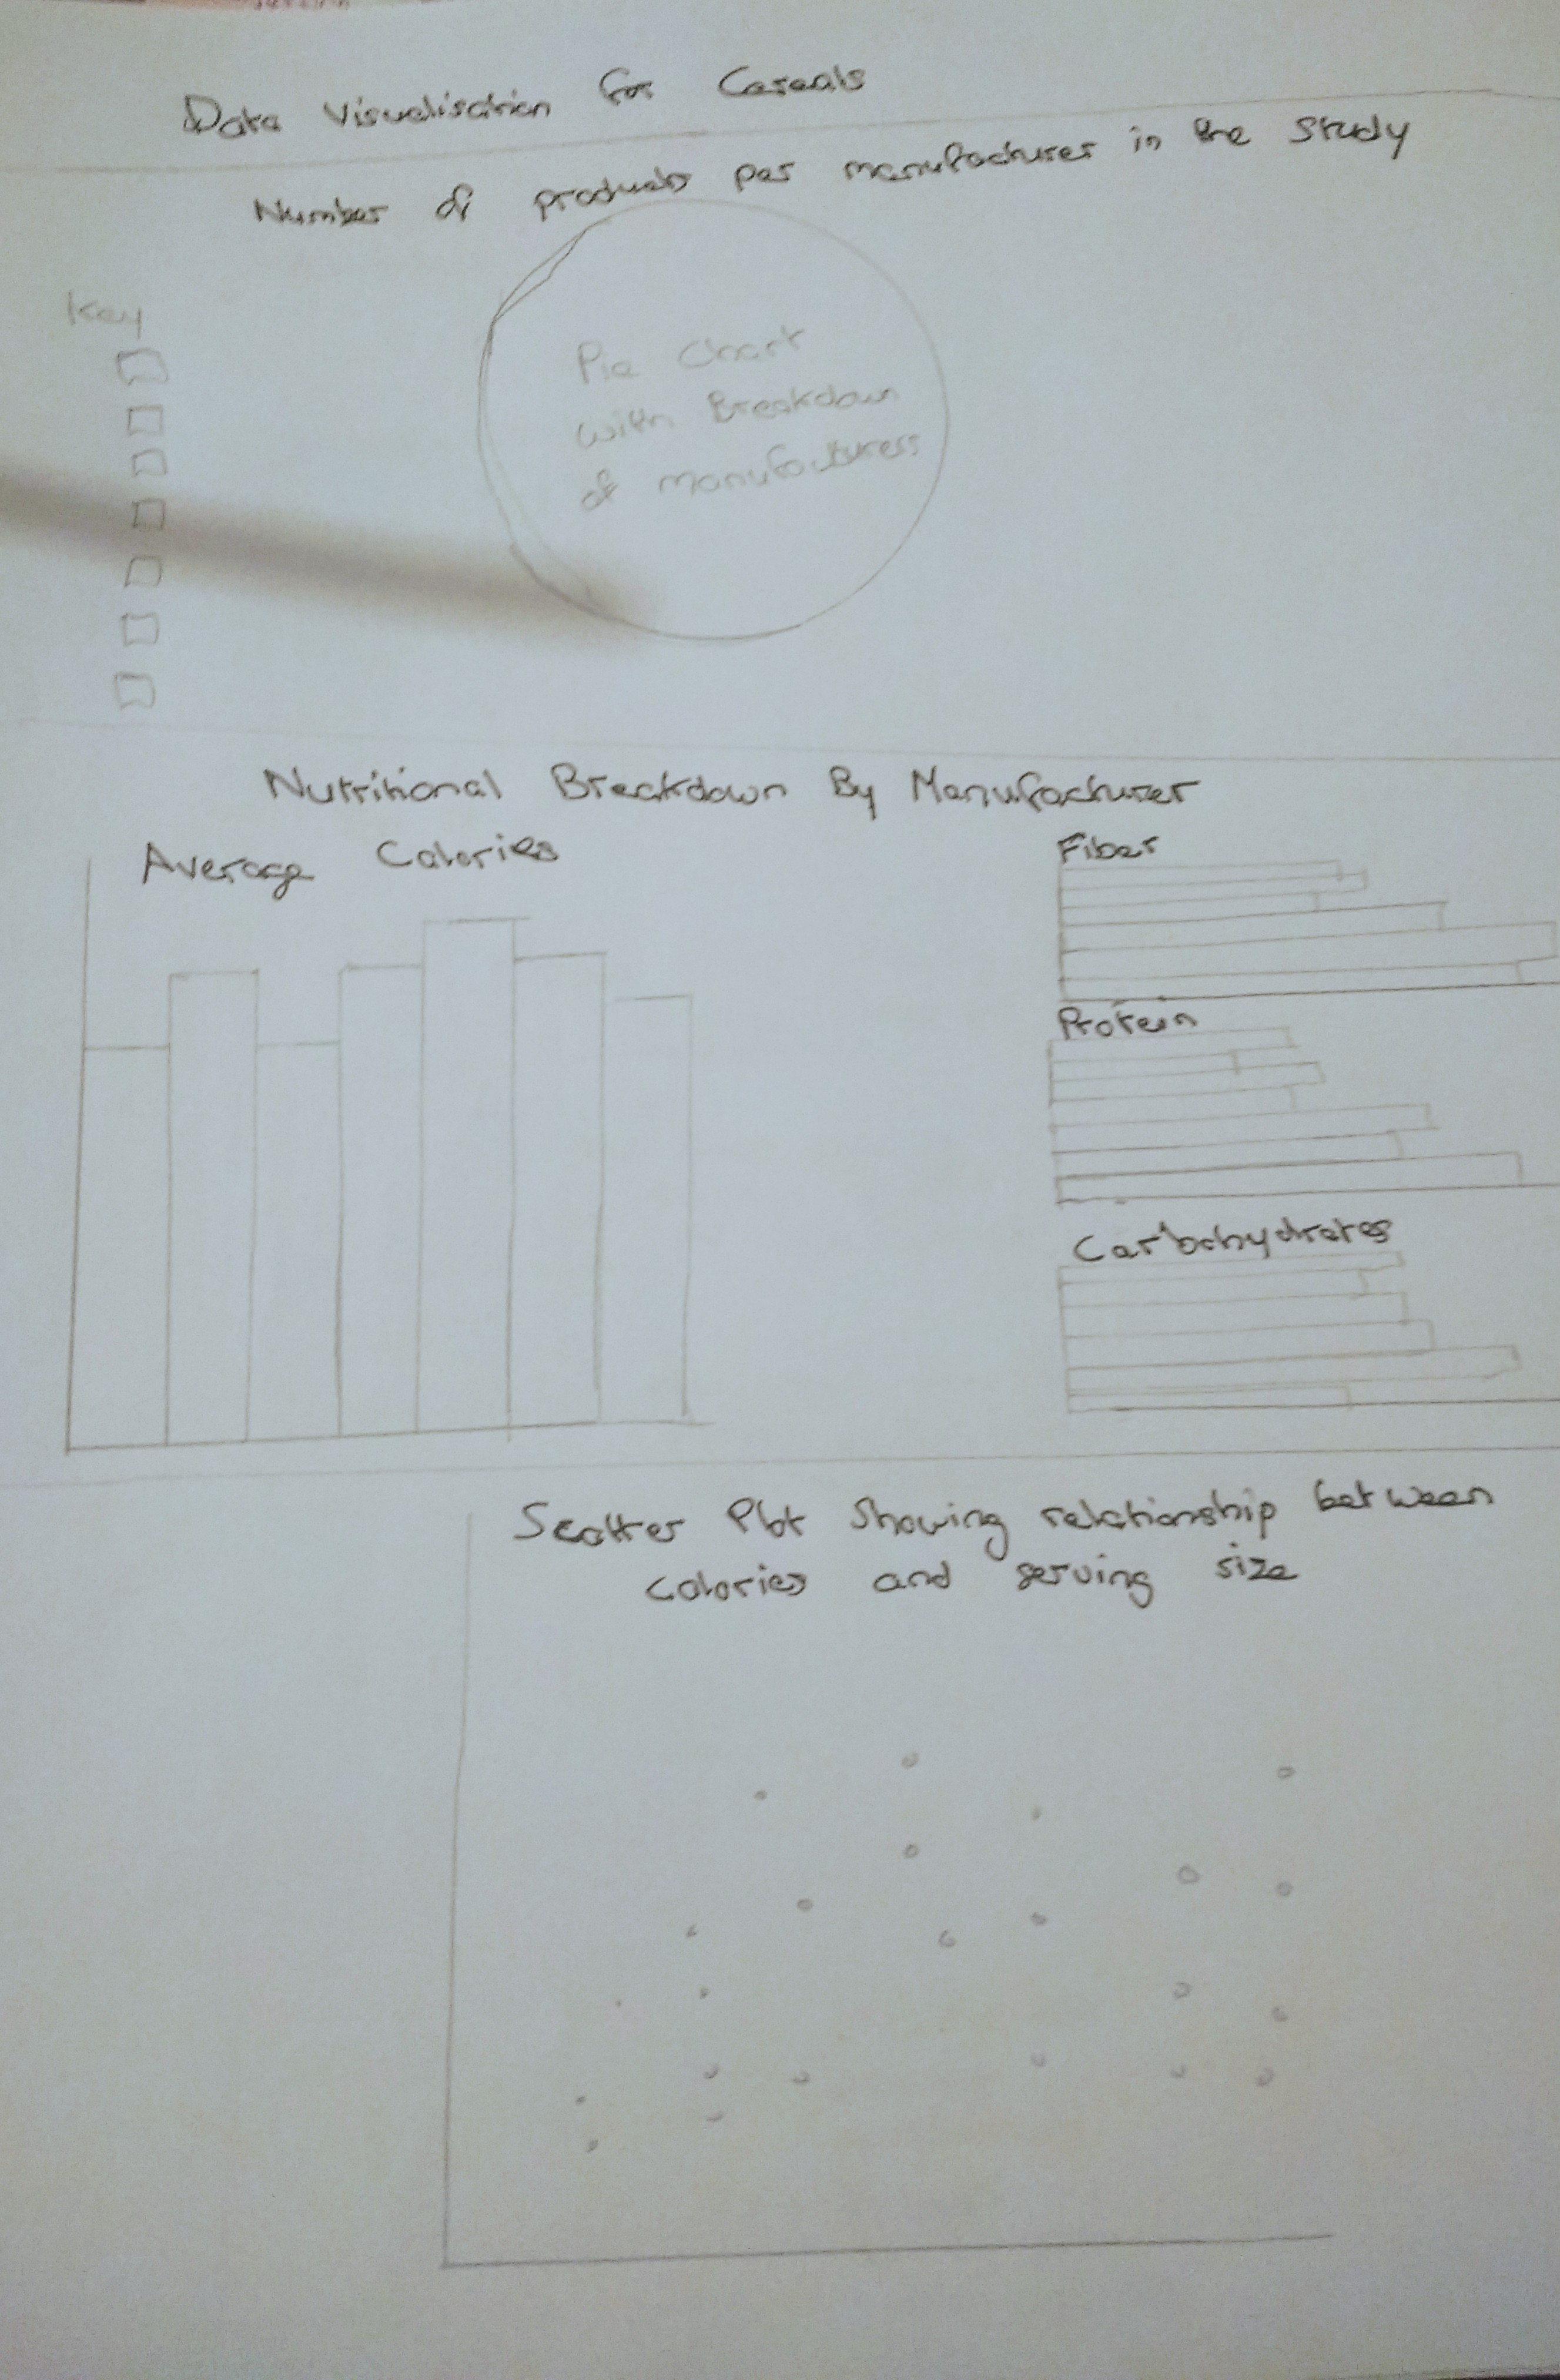 Data Visualisation for Cereals
Number of products per manufacturer in the study
Key
Pie Chart
with Breakdown
of manufacturers
Nutritional Breakdown By Manufacturer
Average Calories
Fiber
Protein
Carbohydrates
Scatter Plot Showing relationship between
calories and serving size